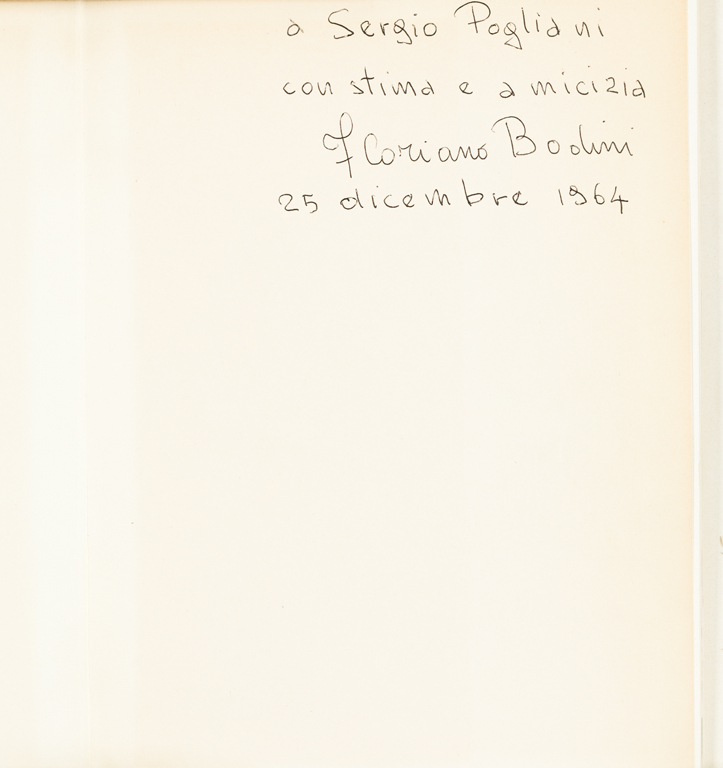 a Sergio Pogliani
con stima e amicizia
Floriano Bodini
25 dicembre 1964